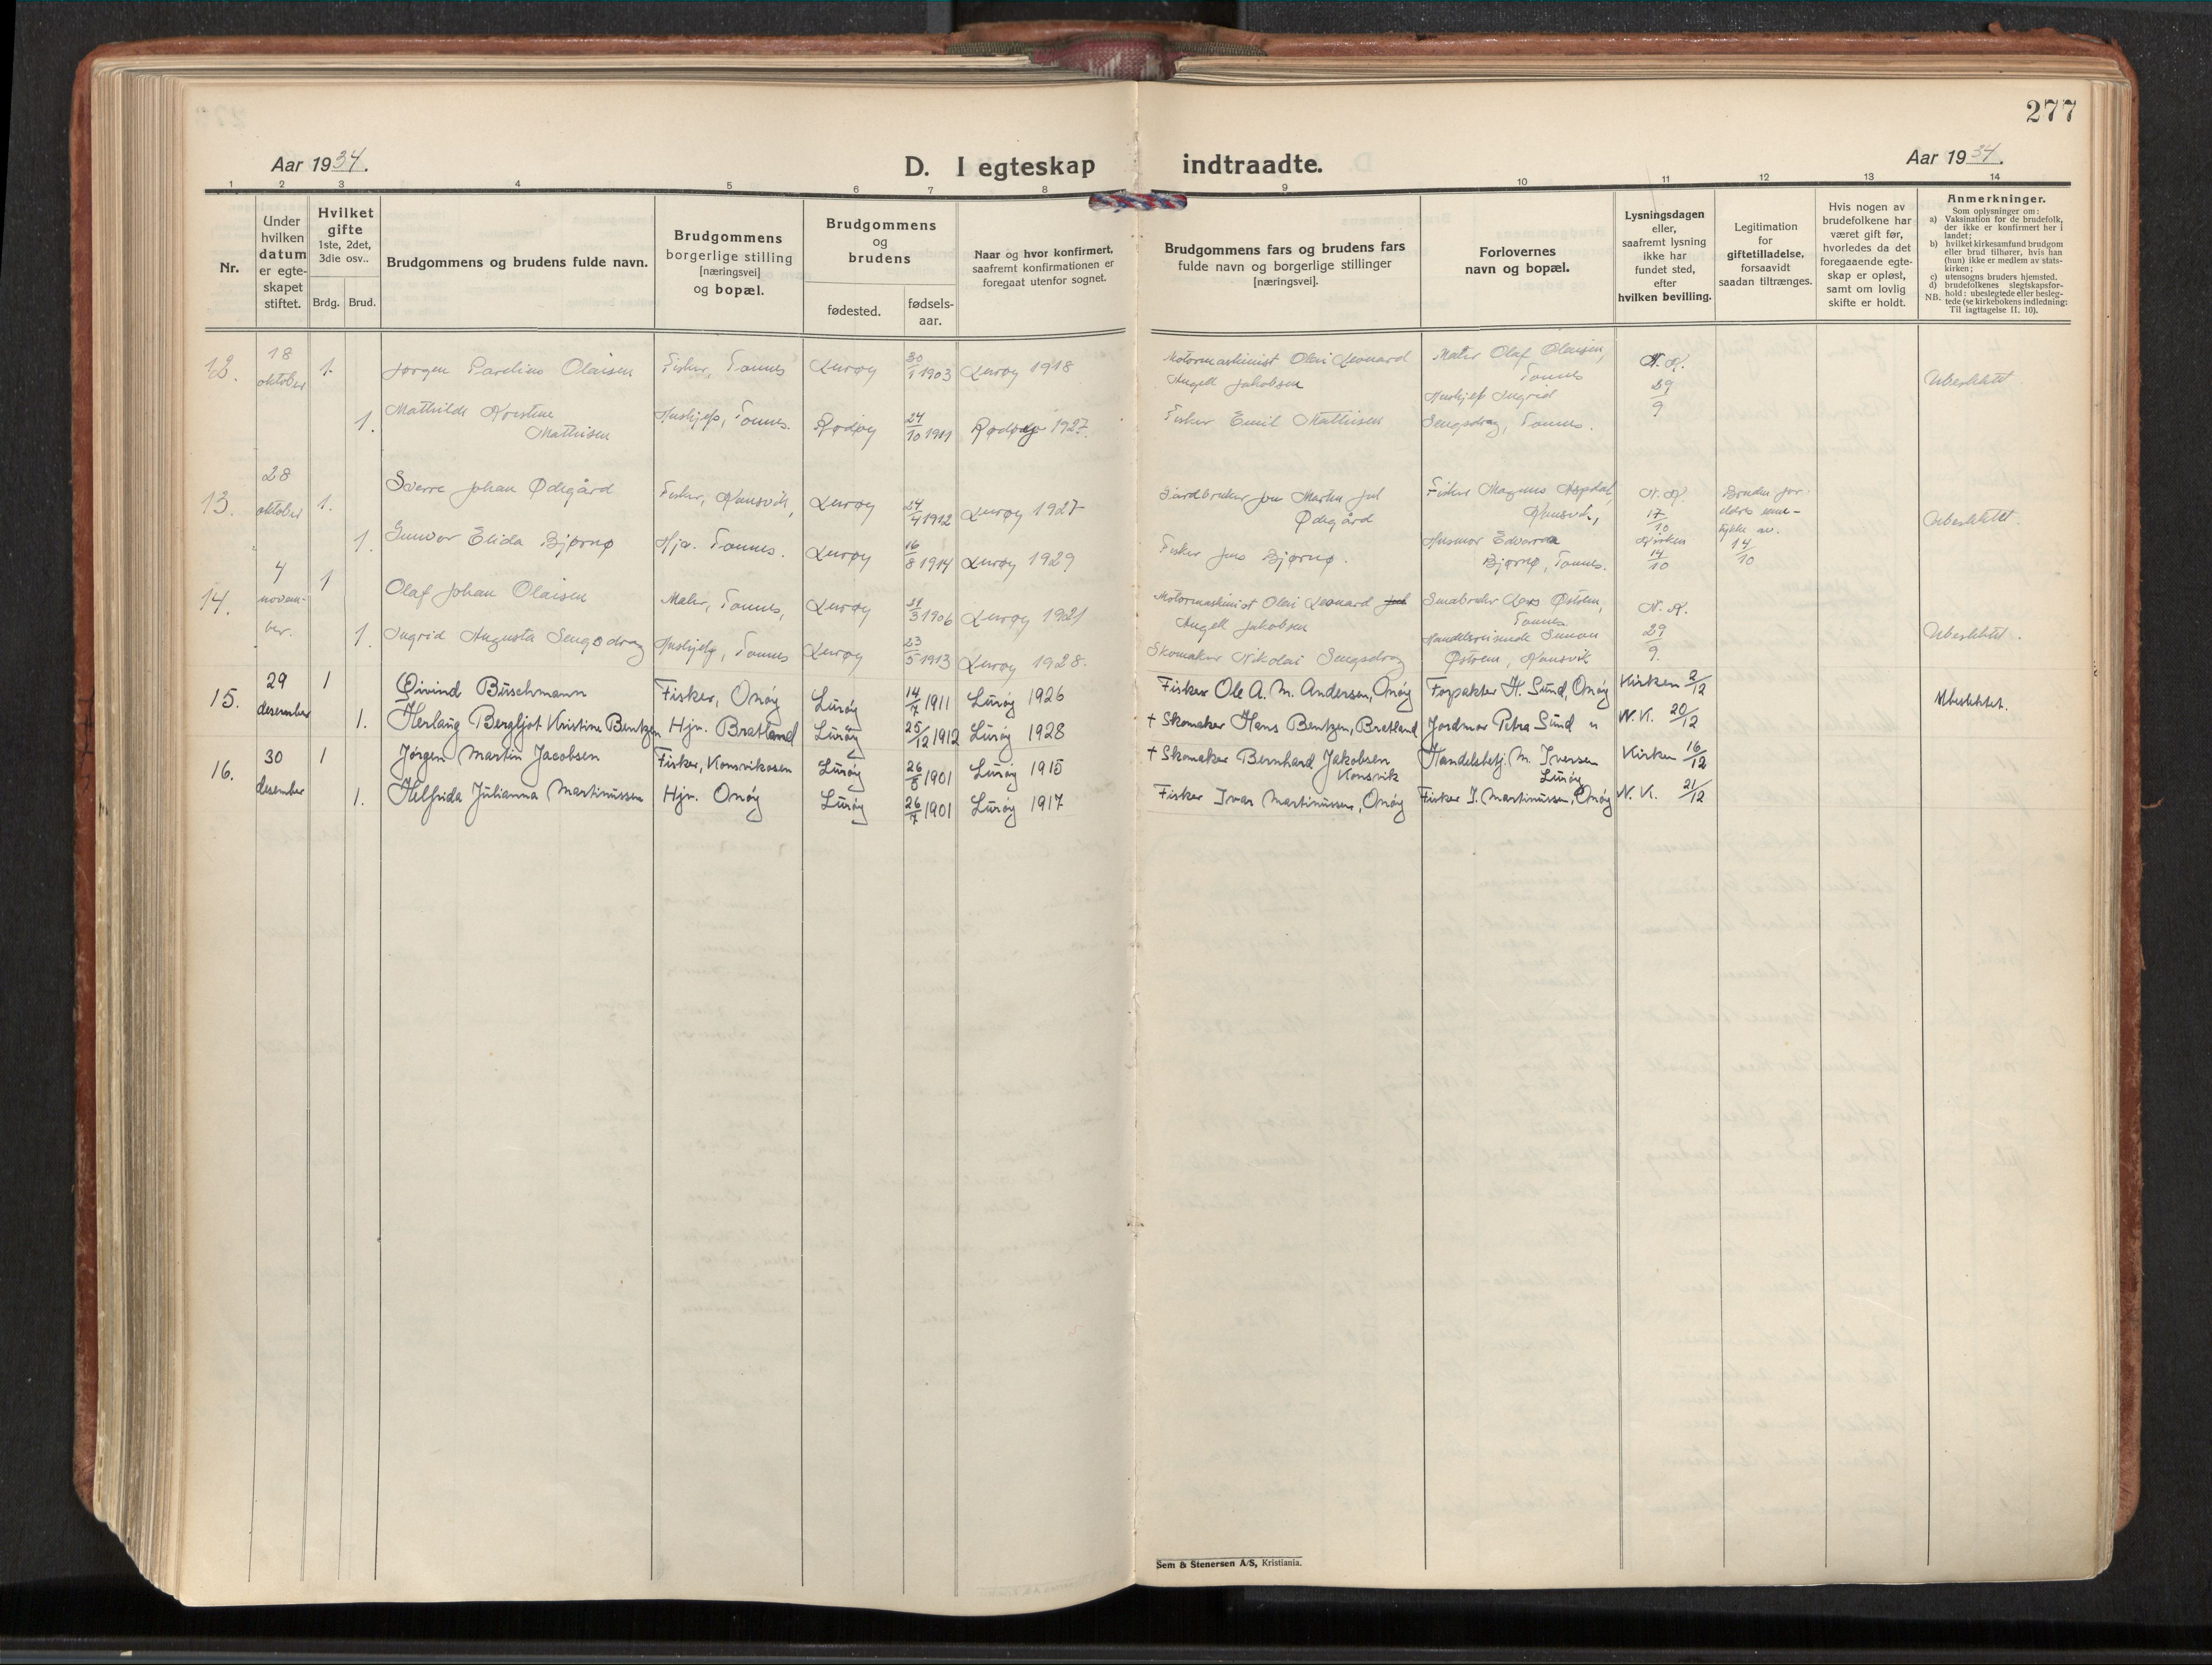 277
Aar 1934.
D. I egteskap indtraadte.
Aar 1934.
1 2 3 4 5 6 7 8 9 10 11 12 13 14
Nr.
Under
hvilken
datum
er egte-
skapet
stiftet.
Hvilket
gifte
1ste, 2det,
3die osv..
Brdg. Brud.
Brudgommens og brudens fulde navn.
Brudgommens
borgerlige stilling
[næringsvei]
og bopæl.
Brudgommens
og
brudens
fødested.
fødsels-
aar.
Naar og hvor konfirmert,
saafremt konfirmationen er
foregaat utenfor sognet.
Brudgommens fars og brudens fars
fulde navn og borgerlige stillinger
[næringsvei].
Forlovernes
navn og bopæl.
Lysningsdagen
eller,
saafremt lysning
ikke har
fundet sted,
efter
hvilken bevilling.
Legitimation
for
giftetilladelse,
forsaavidt
saadan tiltrænges.
Hvis nogen av
brudefolkene har
været gift før,
hvorledes da det
foregaaende egte-
skap er opløst,
samt om lovlig
skifte er holdt.
Anmerkninger.
Som oplysninger om:
a) Vaksination før de brudefolk,
der ikke er konfirmert her i
landet;
b) hvilket kirkesamfund brudgom
eller brud tilhører, hvis han
(hun) ikke er medlem av stats-
kirken;
c) utensogns bruders hjemsted.
d) brudefolkenes slegtskapsfor-
hold: ubeslegtede eller besleg-
NB. tede (se kirkebokens indledning:
Til iagttagelse II. 10).
12.
18
oktober
1.
Jørgen Parelius Olaisen
Fisker, Tonnes
Lurøy
30/1 1903
Lurøy 1918
Motormaskinist Olai Leonard
Angell Jakobsen
Maler Olaf Olaisen,
Tonnes
N. K.
29/9
Ubeslektet.
1.
Mathilde Kristine
Mathisen
Hushjelp, Tonnes.
Rødøy
24/10 1911
Rødøy 1927.
Fisker Emil Mathisen
Hushjelp Ingrid
Sengsdrag, Tonnes.
13.
28
oktober
1.
Sverre Johan Ødegård
Fisker, Konsvik,
Lurøy
24/4 1912
Lurøy 1927
Gardbruker Martin Jul
Ødegård
Fisker Magnus Aspdal,
Konsvik,
N. K.
17/10
Bruden for-
eldres sam-
tykke av.
14/10
Ubeslektet.
1.
Gunvor Elida Bjørnø
Hjv. Tonnes.
Lurøy
16/8 1914
Lurøy 1929
Fisker Jens Bjørnø.
Husmor Edvarda
Bjørnø, Tonnes.
Kirken
14/10
14.
4
novem-
ber.
1
Olaf Johan Olaisen
Maler, Tonnes,
Lurøy
31/3 1906
Lurøy 1921
Motormaskinist Olai Leonard
Angell Jakobsen
Småbruker Østrem,
Tonnes.
N. K.
29/9.
Ubeslektet.
1.
Ingrid Augusta Sengsdrag
Hushjelp, Tonnes
Lurøy
23/5 1913
Lurøy 1928.
Skomaker Nikolai Sengsdrag
Handelsreisende Simon
Østrem, Konsvik
15.
29
desember
1
Øivind Buschmann
Fisker, Onøy
Lurøy
14/7 1911
Lurøy 1926
Fisker Ole A. M. Andersen, Onøy
Forpakter H. Sund, Onøy
Kirken 2/12
Ubeslektet.
1.
Herlaug Bergljot Kristine Bentzen
Hjv. Bratland
Lurøy
25/12 1912
Lurøy 1928
+ Skomaker Hans Bentzen, Bratland
Jordmor Petra Sund "
N. K. 20/12
16.
30
desember
1
Jørgen Martin Jacobsen
Fisker, Konsvikosen
Lurøy
26/8 1901
Lurøy 1915
+ Skomaker Bernhard Jakobsen
Konsvik
Handelsbetj. M. Iversen
Lurøy
Kirken 16/12
1.
Helfrida Julianna Martinussen
Hjv. Onøy
Lurøy
26/7 1901
Lurøy 1917
Fisker Ivar Martinussen, Onøy
Fisker I. Martinussen, Onøy
N. K. 21/12
Sem & Stenersen A/S, Kristiania.